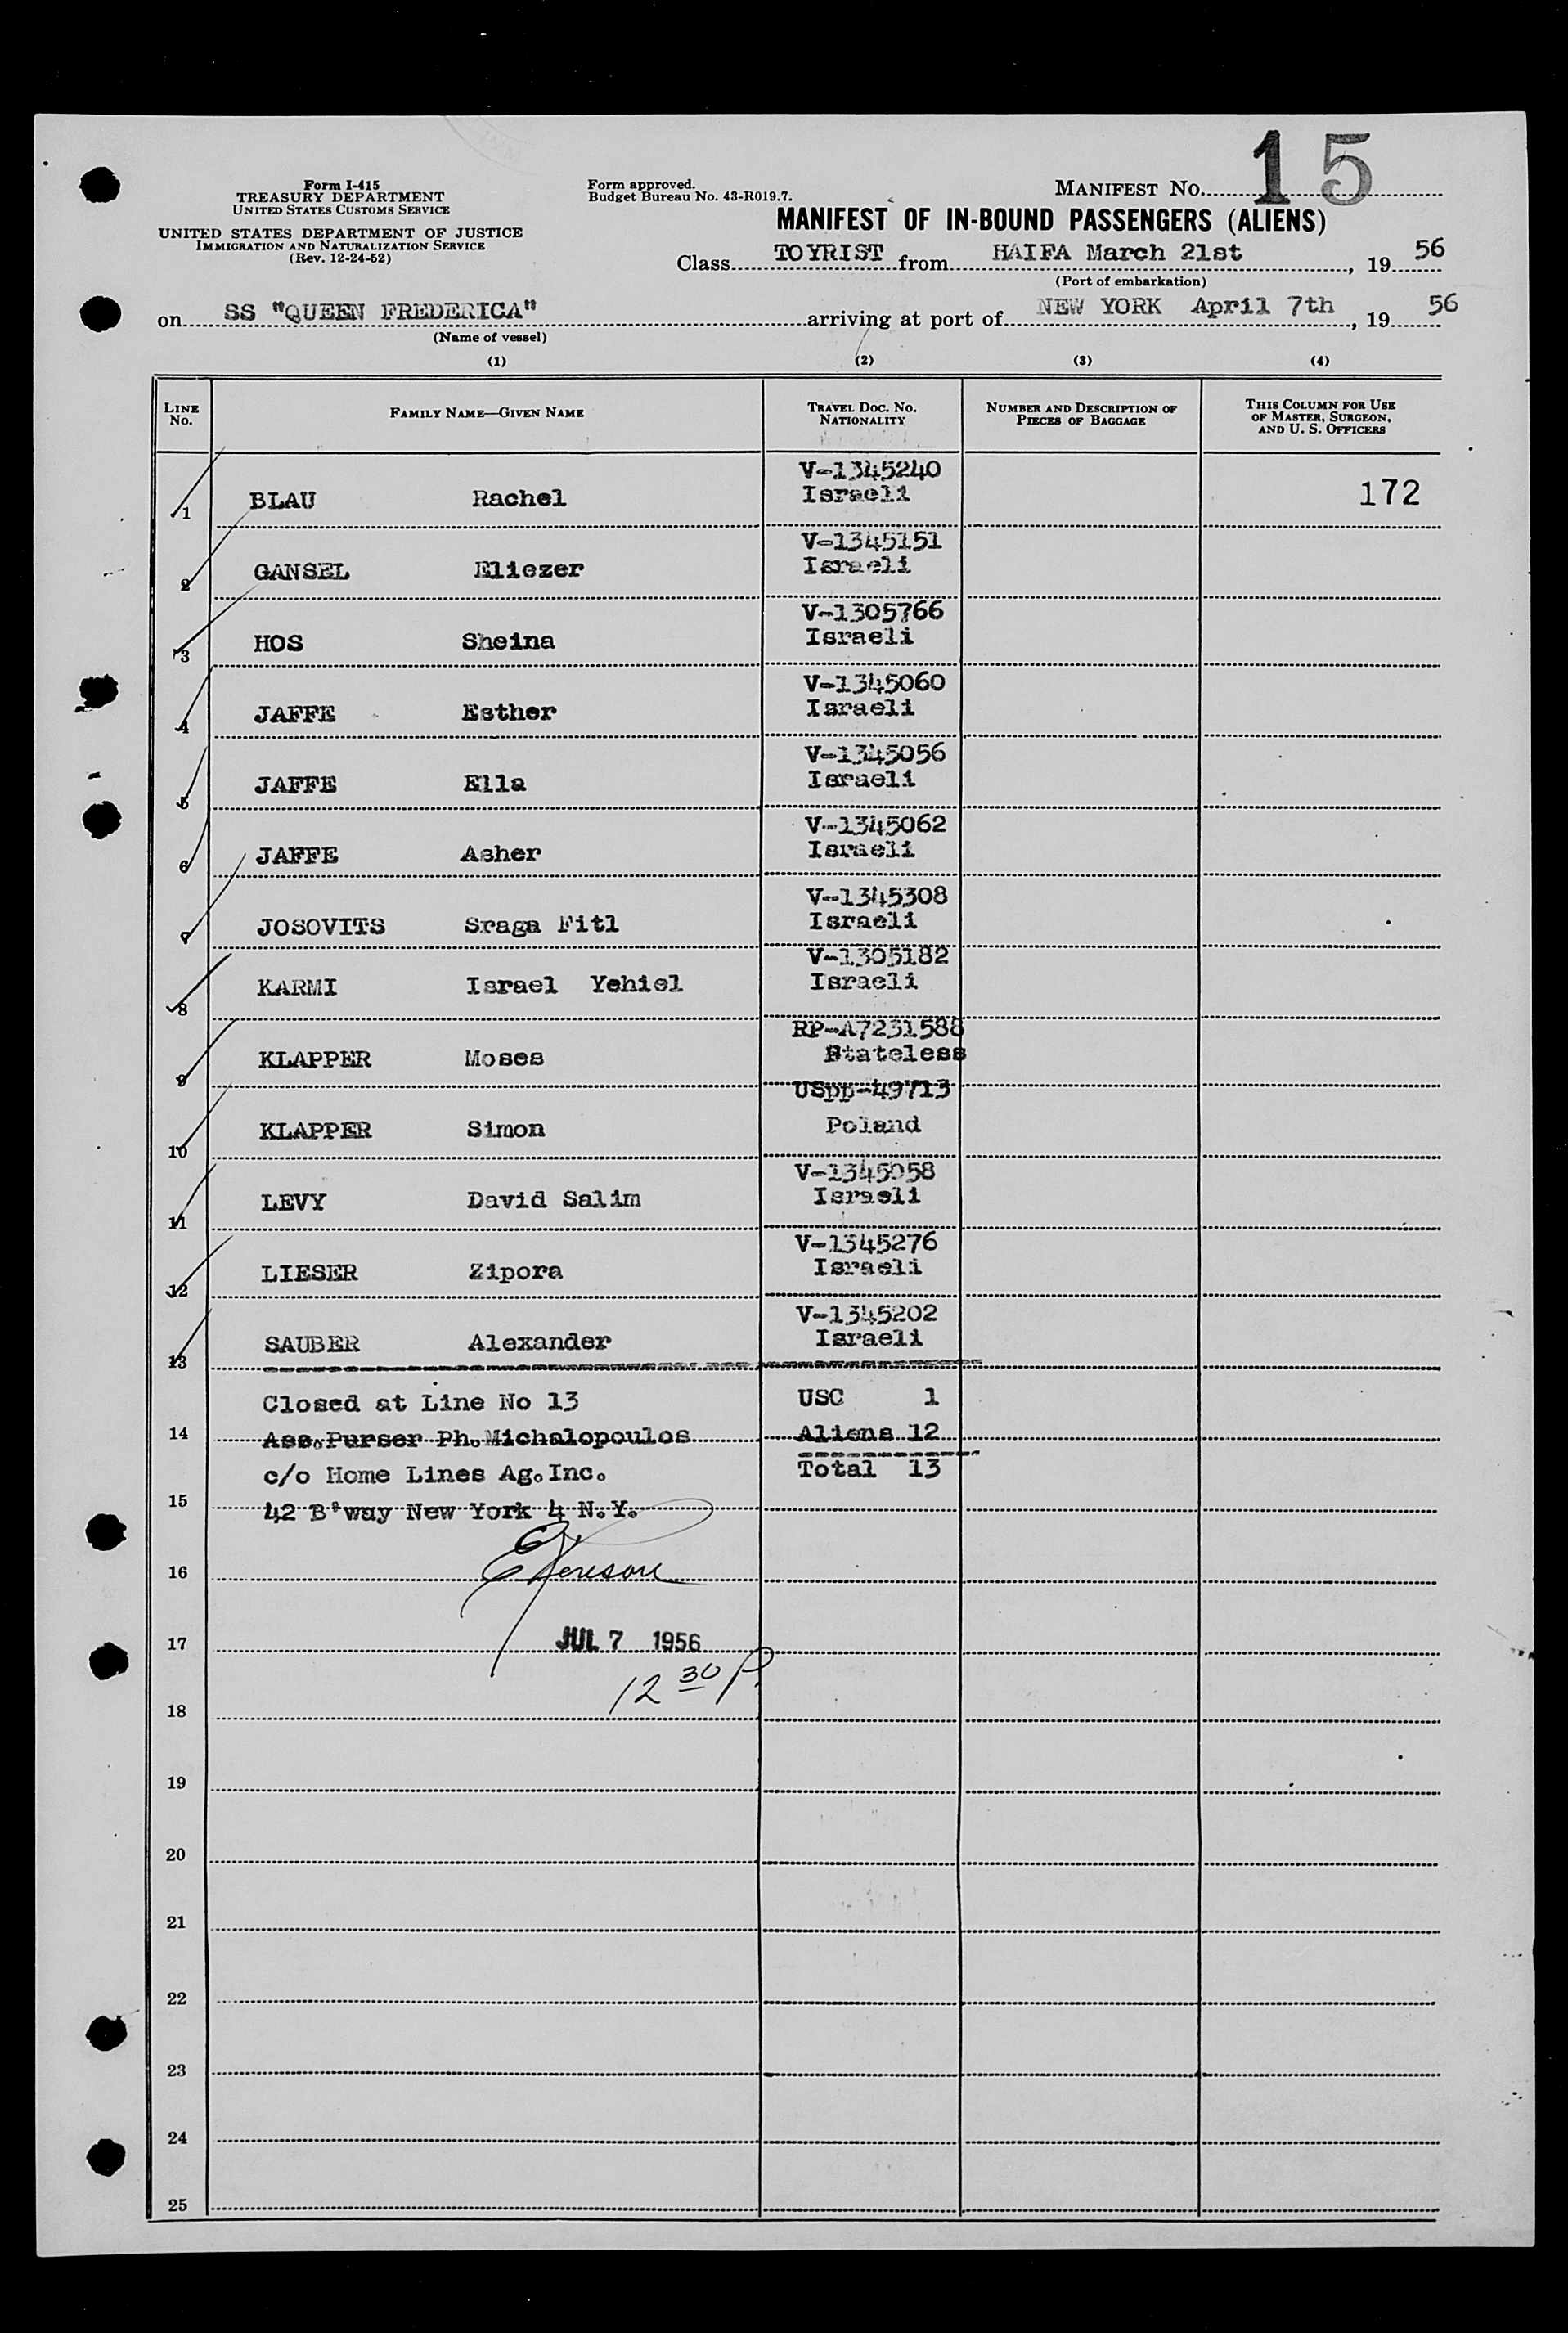 15
Form I-415
TREASURY DEPARTMENT
UNITED STATES CUSTOMS SERVICE
UNITED STATES DEPARTMENT OF JUSTICE
IMMIGRATION AND NATURALIZATION SERVICE
(Rev. 12-24-52)
Form approved.
Budget Bureau No. 43-R019.7.
MANIFEST NO.
MANIFEST OF IN-BOUND PASSENGERS (ALIENS)
Class TOYRIST from HAIFA March 21st, 19 56
(Port of embarkation)
on SS "QUEEN FREDERICA" arriving at port of NEW YORK April 7th, 19 56
(Name of vessel)
(1) (2) (3) (4)
LINE No. FAMILY NAME—GIVEN NAME TRAVEL DOC. NO. NATIONALITY NUMBER AND DESCRIPTION OF PIECES OF BAGGAGE THIS COLUMN FOR USE OF MASTER, SURGEON, AND U. S. OFFICERS
V-1345240
1 BLAU Rachel Israeli 172
V-1345151
2 GANSEL Eliezer Israeli
V-1305766
3 HOS Sheina Israeli
V-1345060
4 JAFFE Esther Israeli
V-1345056
5 JAFFE Ella Israeli
V-1345062
6 JAFFE Asher Israeli
V-1345308
7 JOSOVITS Sraga Fitl Israeli
V-1305182
8 KARMI Israel Yehiel Israeli
RP-A7231588
9 KLAPPER Moses Stateless
USpp-49713
10 KLAPPER Simon Poland
V-1345058
11 LEVY David Salim Israeli
V-1345276
12 LIESER Zipora Israeli
V-1345202
13 SAUBER Alexander Israeli
Closed at Line No 13 USC 1
14 Ass.Purser Ph.Michalopoulos Aliens 12
c/o Home Lines Ag.Inc. Total 13
15 42 B'way New York 4 N.Y.
16
17 JUL 7 1956
12 30 P.
18
19
20
21
22
23
24
25